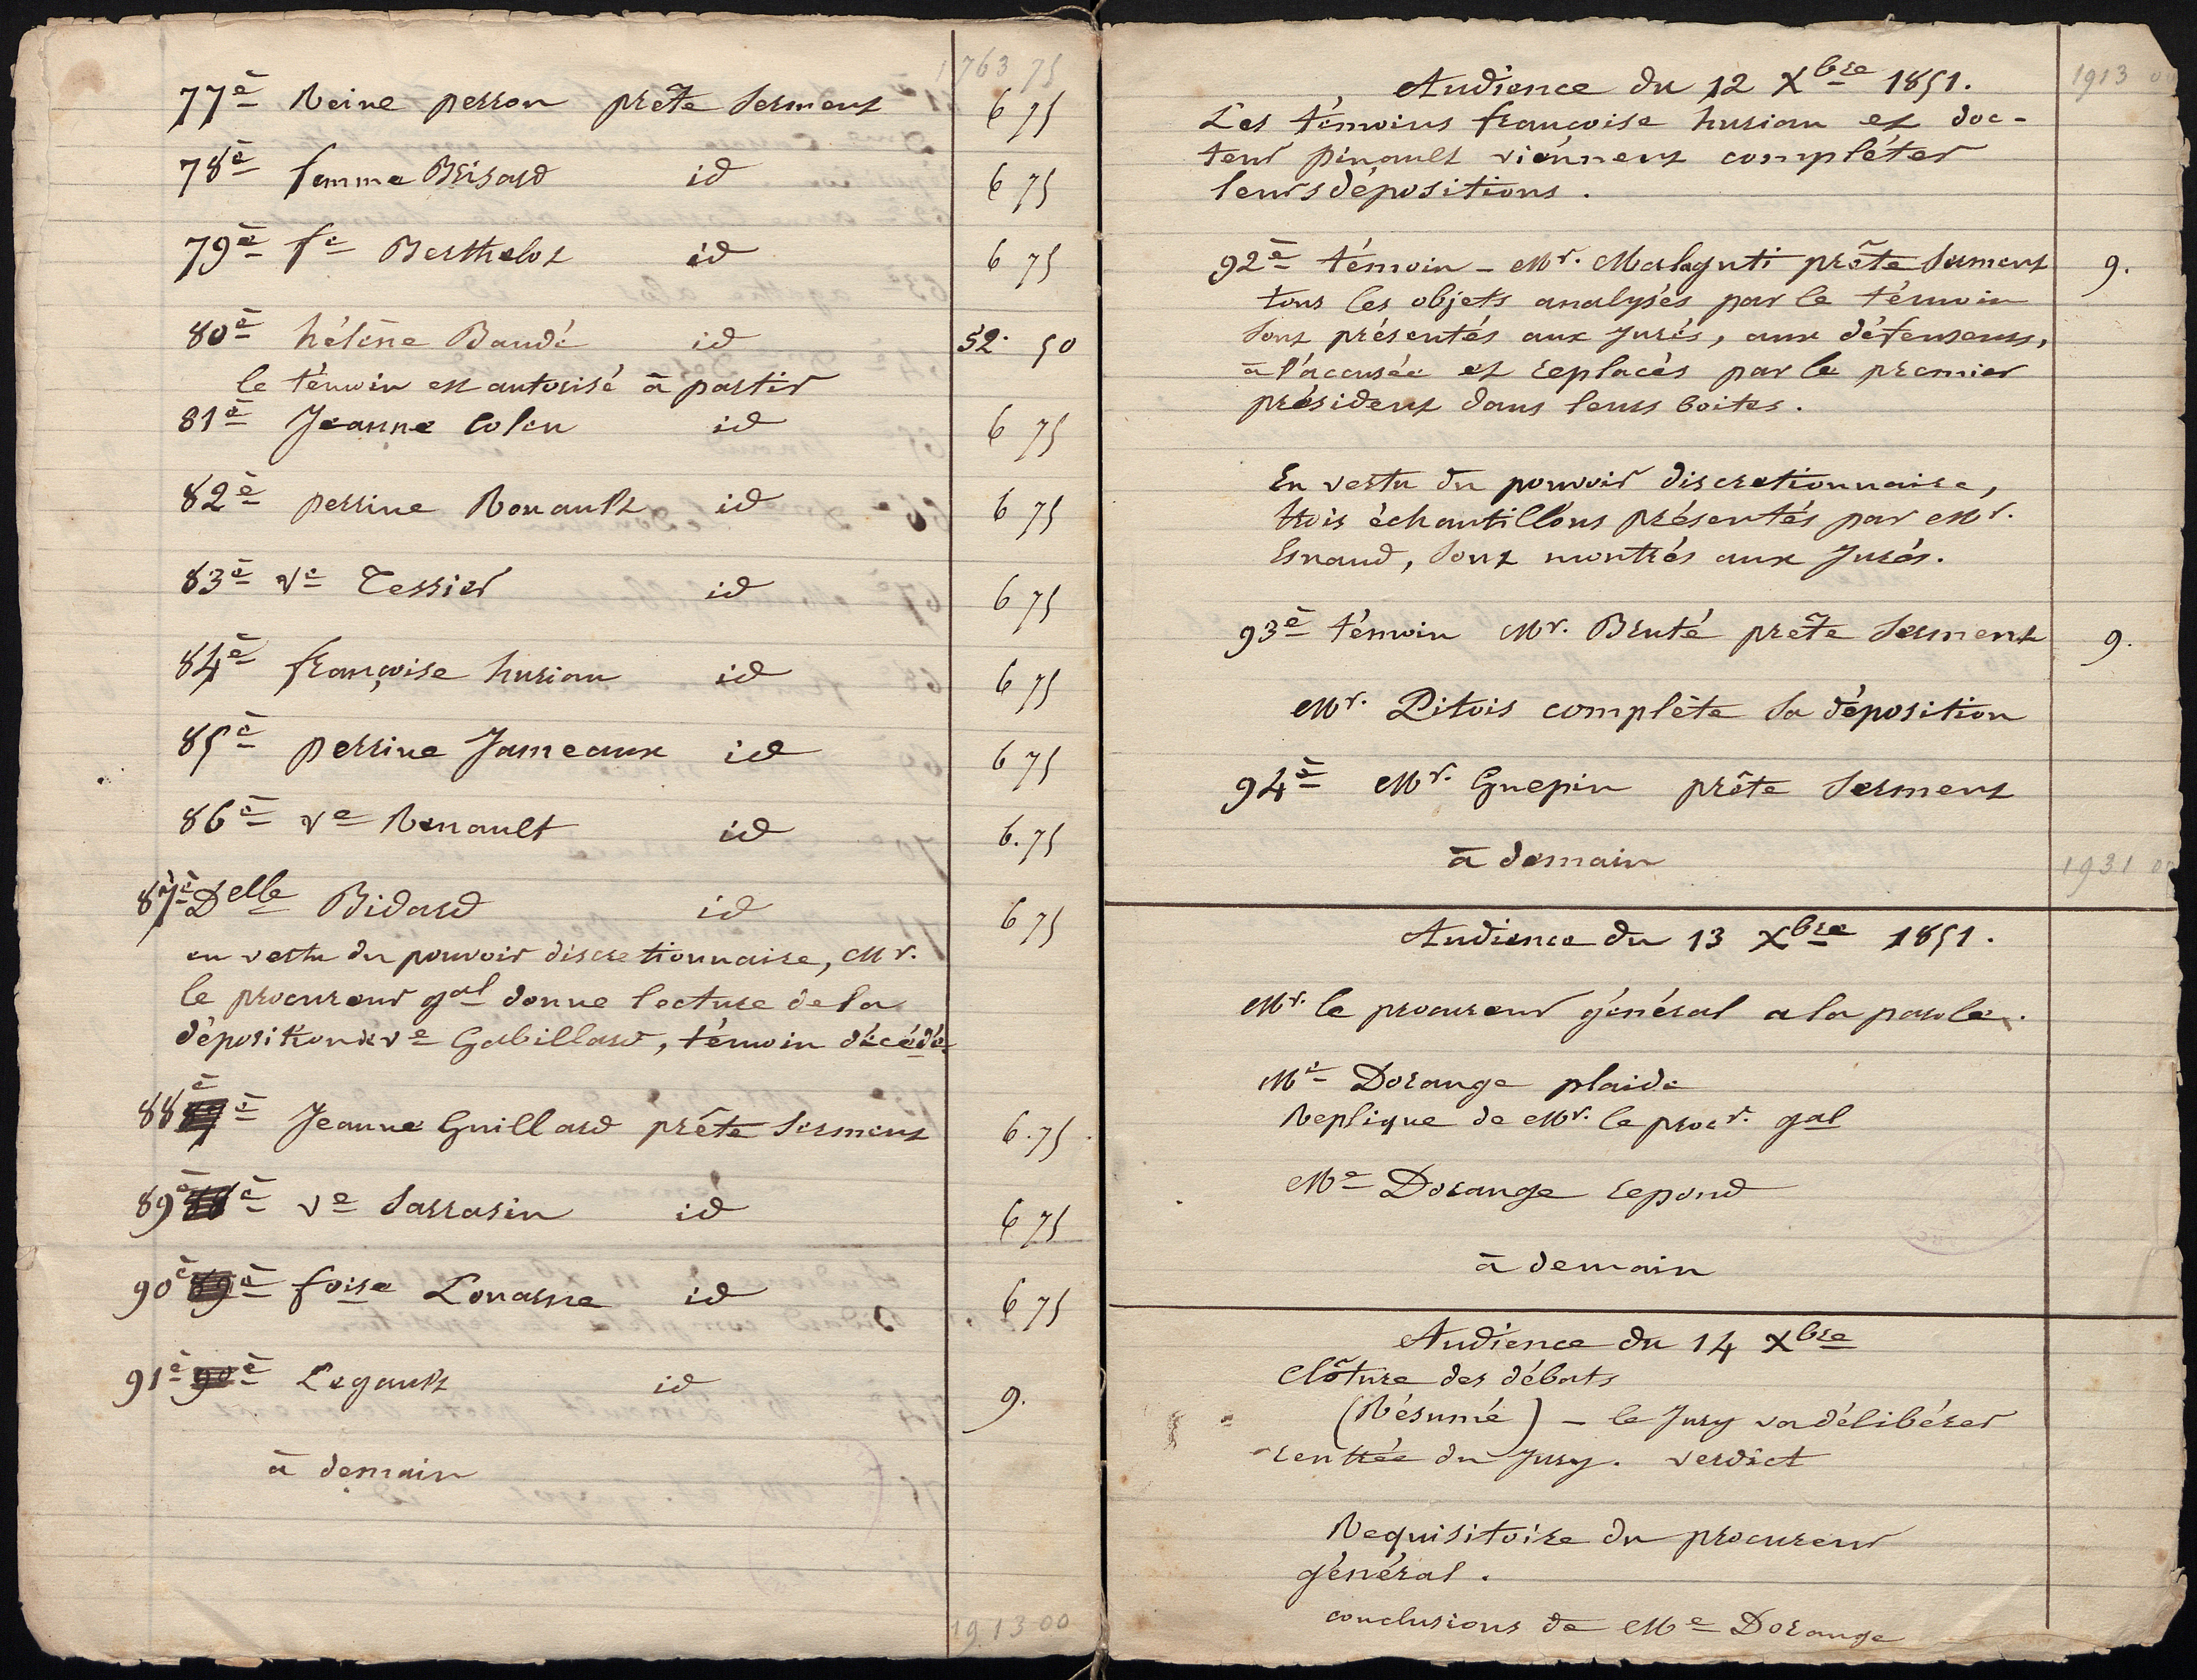 1763 75
77è Reine perron prête serment 6 75
78è femme Brisard id 6 75
79è fe Berthelot id 6 75
80è hélène Baudé id 52. 50
le témoin est autorisé à partir
81è Jeanne Colin id 6 75
82è perrine Rouault id 6 75
83è ve Tessier id 6 75
84è françoise huriau id 6 75
85è perrine Jameaux id 6 75
86è ve Renault id 6.75
87è Delle Bidard id 6 75
en vertu du pouvoir discretionnaire, Mr.
le procureur gal donne lecture de la
déposition de ve Gabillard, témoin décédé.
88è 87è Jeanne Guillard prête serment 6.75.
89è 88è ve Sarrasin id 6 75
90è 89è foise Louasne id 6 75
91è 90è Legault id 9.
à demain
1913 00
1913 00
Audience du 12 Xbre 1851.
Les témoins françoise huriau et doc-
teur pinault viennent compléter
leurs dépositions.
92è témoin - Mr. Malaguti prête serment 9.
tous les objets analysés par le témoin
sont présentés aux Jurés, aux défenseurs,
à l'accusée et replacés par le premier
président dans leurs boites.
En vertu du pouvoir discretionnaire,
trois échantillons présentés par Mr.
Esnaud, sont montrés aux Jurés.
93è témoin Mr. Bruté prête serment 9.
Mr. Pitois complète sa déposition
94è Mr. Guepin prête serment
à demain
1931 00
Audience du 13 Xbre 1851.
Mr. le procureur général a la parole.
Me Dorange plaide
Replique de Mr. le procr. gal
Me Dorange repond
à demain
Audience du 14 Xbre
Clôture des débats
(Résumé) - le Jury va délibérer
rentrée du Jury. verdict
Requisitoire du procureur
général.
conclusions de Me Dorange